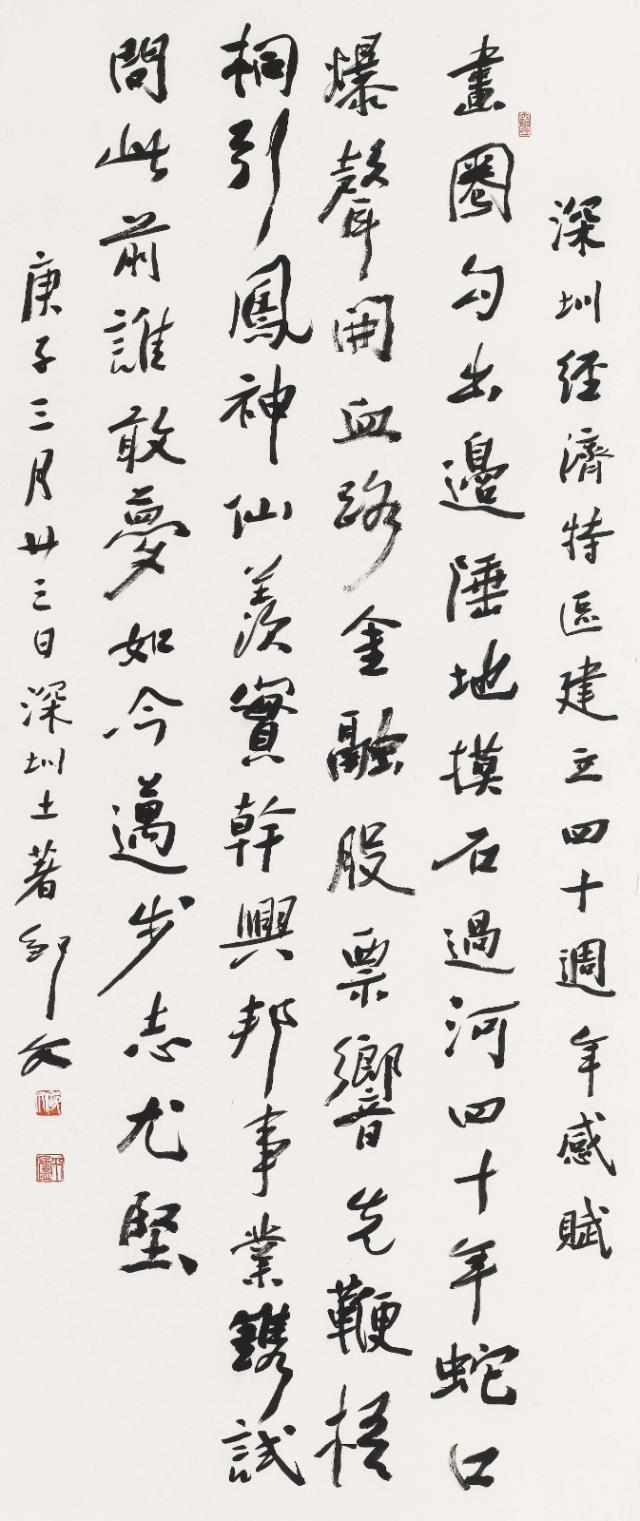 深圳經濟特區建立四十週年感賦
畫圈勾出邊陲地摸石過河四十年蛇口
爆聲開血路金融股票響先鞭梧
桐引鳳神仙羨實幹興邦事業鐫試
問此前誰敢夢如今邁步志尤堅
庚子三月廿三日深圳土著鄒文